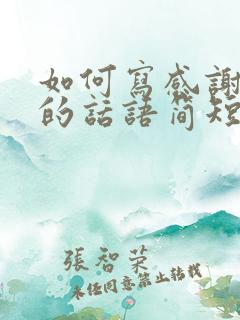 如何寫感謝
的話語簡短
張智榮
未經同意禁止轉載